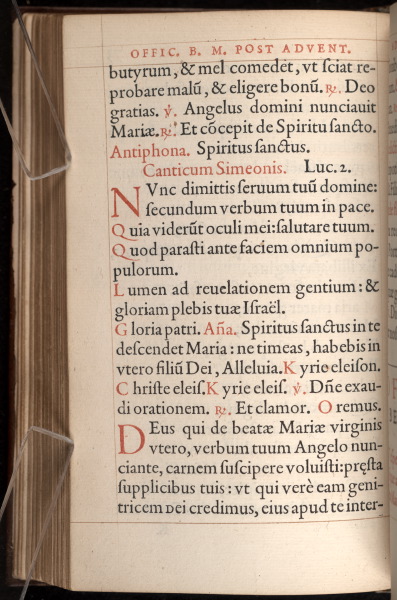 OFFIC. B. M. POST ADVENT.
butyrum, & mel comedet, vt sciat re-
probare malũ, & eligere bonũ. ℟. Deo
gratias. ℣. Angelus domini nunciauit
Mariæ. ℟. Et cõcepit de Spiritu sancto.
Antiphona. Spiritus sanctus.
Canticum Simeonis. Luc. 2.
NVnc dimittis seruum tuũ domine:
secundum verbum tuum in pace.
Quia viderũt oculi mei: salutare tuum.
Quod parasti ante faciem omnium po-
pulorum.
Lumen ad reuelationem gentium: &
gloriam plebis tuæ Israël.
Gloria patri. Aña. Spiritus sanctus in te
descendet Maria: ne timeas, habebis in
vtero filiũ Dei, Alleluia. Kyrie eleison.
Christe eleis. Kyrie eleis. ℣. Dñe exau-
di orationem. ℟. Et clamor. Oremus.
DEus qui de beatæ Mariæ virginis
vtero, verbum tuum Angelo nun-
ciante, carnem suscipere voluisti: pręsta
supplicibus tuis: vt qui verè eam geni-
tricem Dei credimus, eius apud te inter-